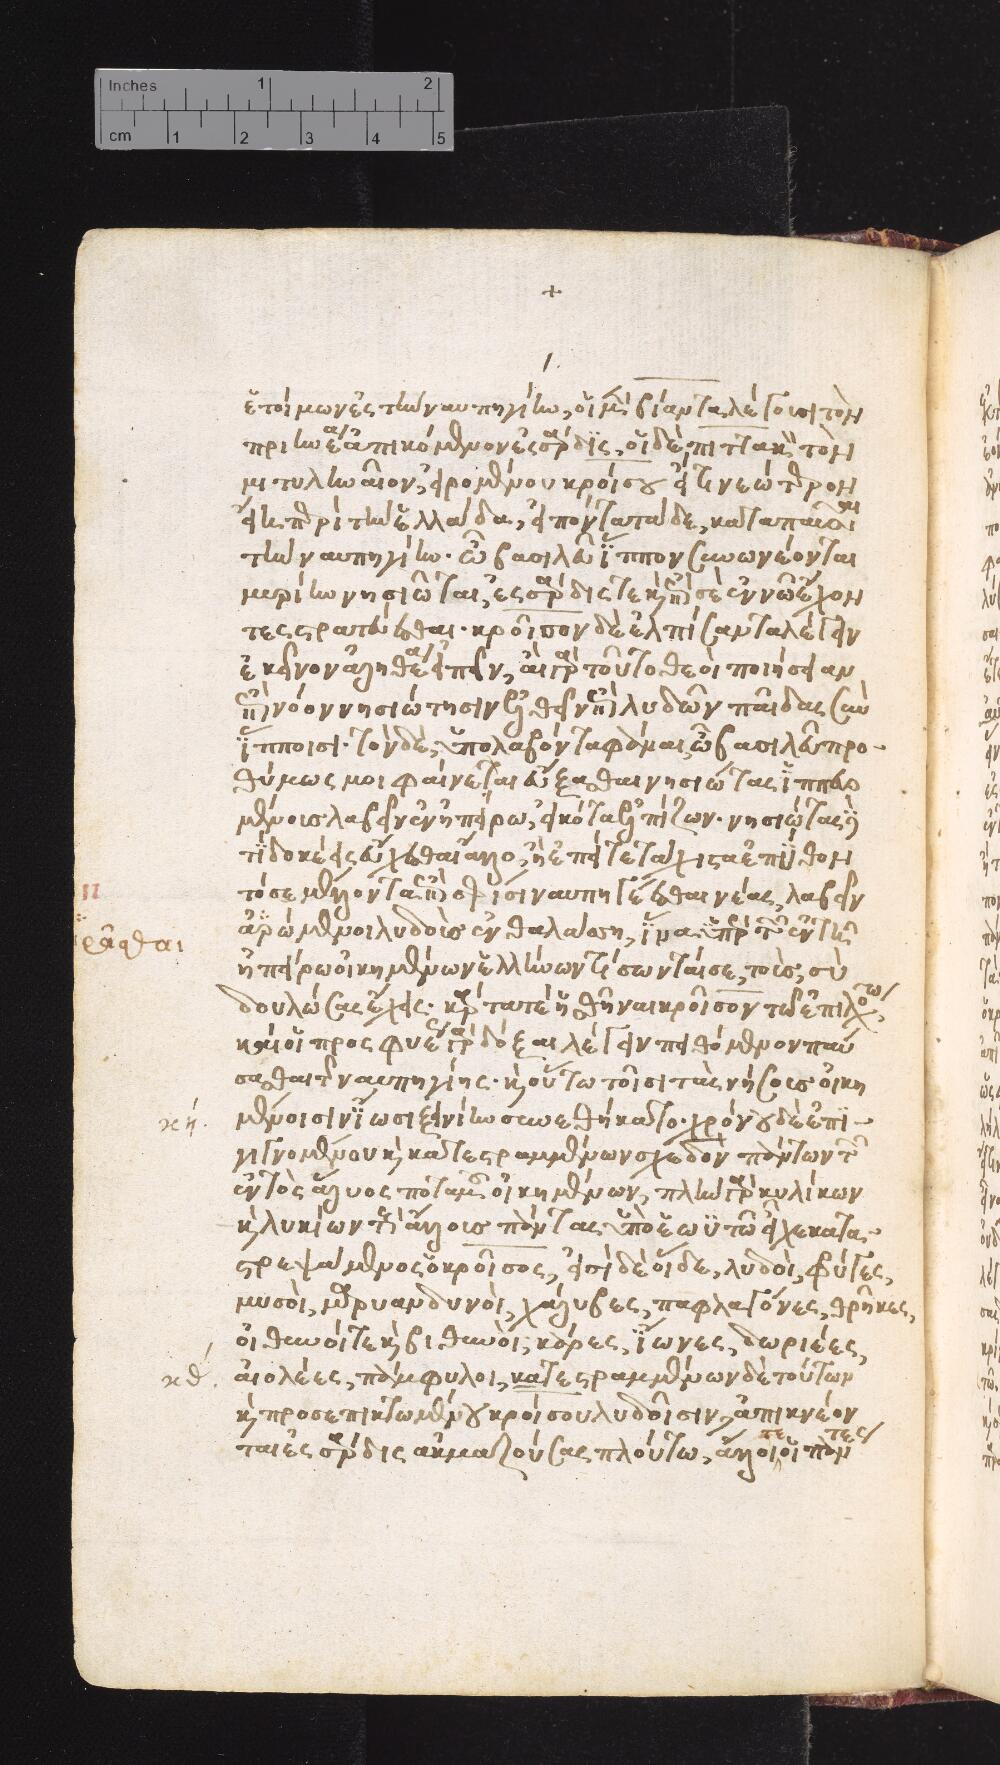 Inches 1 2
cm 1 2 3 4 5
+
ἑτοίμων ἐς τὴν ναυπηγίην, οἱ μὲν βίαντα λέγουσι τὸν
πριηνέα ἀπικόμενον ἐς σάρδις, οἱ δὲ πιττακὸν τὸν
μιτυληναῖον, εἰρομένου κροίσου εἴ τι νεώτερον
εἴη περὶ τὴν ἑλλάδα, εἰπόντα τάδε, καταπαῦσαι
τὴν ναυπηγίην. ὦ βασιλεῦ ἵππον συνωνέονται
μυρίην νησιῶται, ἐς σάρδις τε καὶ ἐπὶ σὲ ἐν νῶ ἔχον
τες στρατεύεσθαι. κροῖσον δὲ ἐλπίσαντα λέγειν
ἐκεῖνον ἀληθέα εἰπεῖν, αἲ γὰρ τοῦτο θεοὶ ποιήσειαν
ἐπὶ νόον νησιώτησιν ἐλθεῖν ἐπὶ λυδῶν παῖδας σὺν
ἵπποισι. τὸν δὲ, ὑπολαβόντα φάναι, ὦ βασιλεῦ προ-
θύμως μοι φαίνεαι εὔξασθαι νησιώτας ἱππευο
μένους λαβεῖν ἐν ἠπείρω, εἰκότα ἐλπίζων. νησιώτας δὲ
τί δοκέεις εὔχεσθαι ἄλλο, ἢ ἐπεί τε τάχιστα ἐπύθον
τό σε μέλλοντα ἐπὶ σφίσι ναυπηγέεσθαι νέας, λαβεῖν
ἀρώμενοι λυδοὺς ἐν θαλάσση, ἵνα ὑπὲρ τῶν ἐν τῆ
ἠπείρω οἰκημένων ἑλλήνων τίσωνταί σε, τοὺς, σὺ
δουλώσας ἔχεις. κάρτα τε ἡσθῆναι κροῖσον τῶ ἐπιλόγω,
καί οἱ προσφυέως γὰρ δόξαι λέγειν πειθόμενον παύ
σασθαι τῆς ναυπηγίης. καὶ οὕτω τοῖσι τὰς νήσους οἰκη
μένοισιν ἴωσι ξεινίην συνεθήκατο. χρόνου δὲ ἐπι-
γιγνομένου καὶ κατεστραμμένων σχεδὸν πάντων τῶν
ἐντὸς ἅλυος ποταμοῦ οἰκημένων, πλὴν γὰρ κιλίκων
καὶ λυκίων τοὺς ἄλλους πάντας ὑπὸ ἑωυτῶ εἶχε κατα-
στρεψάμενος ὁ κροῖσος, εἰσὶ δὲ οἵδε, λυδοὶ, φρύγες,
μυσοὶ, μαρυανδυνοὶ, χάλυβες, παφλαγόνες, θρήικες,
οἱ θυνοί τε καὶ βιθυνοὶ, κᾶρες, ἴωνες, δωριέες,
αἰολέες, πάμφυλοι, κατεστραμμένων δὲ τούτων
καὶ προσεπικτωμένου κροίσου λυδοῖσιν, ἀπικνέον
ται ἐς σάρδις ἀκμαζούσας πλούτω, ἄλλοι τε οἱ πάντες
ρᾶσθαι
κή.
κθ́.